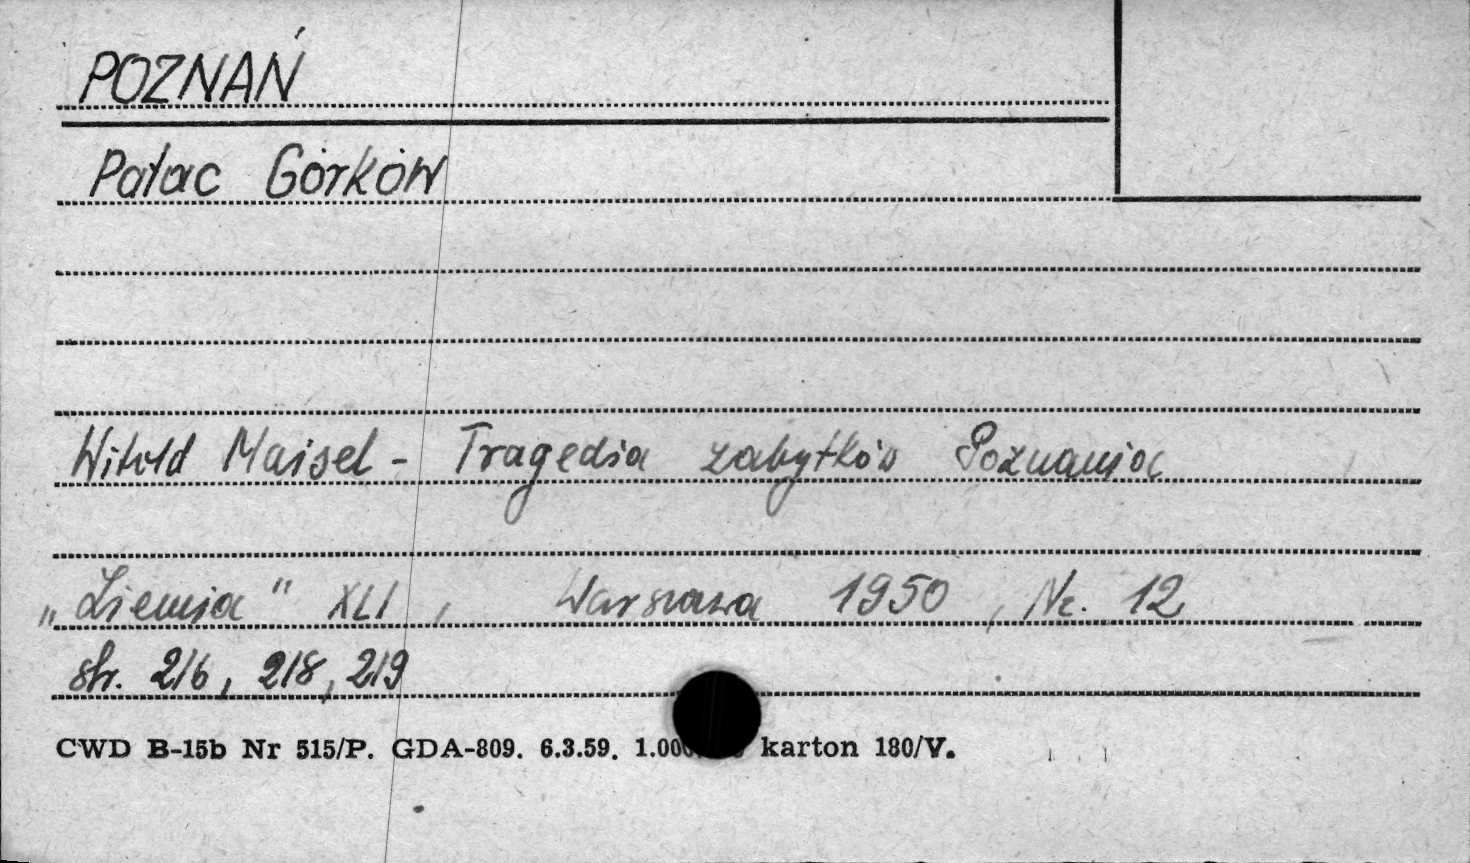 POZNAŃ
Pałac Górków
Witold Maisel - Tragedia zabytków Poznania
„Ziemia" XLI, Warszawa 1950, Nr. 12
str. 216, 218, 219
CWD B-15b Nr 515/P. GDA-809. 6.3.59. karton 180/V.